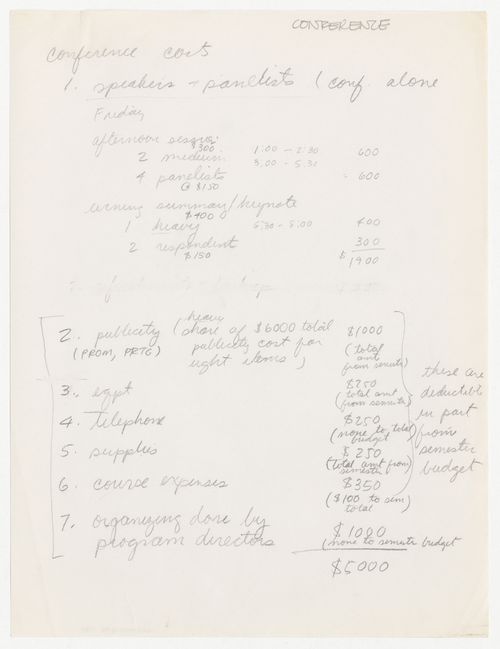 CONFERENCE
conference cost
1. speakers + panelists (conf. alone
Friday
afternoon session:
$300
2 medium 1:00 - 2:30 600
3:00 - 5:30
4 panelists = 600
@ $150
evening summary/keynote
$400
1 heavy 5:30 - 5:00 400
2 respondent 300
$150 $1900
2. publicity (heavy share of $6000 total $1000
(PROM, PRTG) publicity cost for (total amt
eight items) from semester)
3. eqpt $250
(total amt from semester)
4. telephone $250
(none to total budget
5. supplies $250
(total amt from semester
6. course expenses $350
($100 to sem) total
7. organizing done by $1000
program directors (none to semester budget
$5000
these are
deductable
in part
from
semester
budget